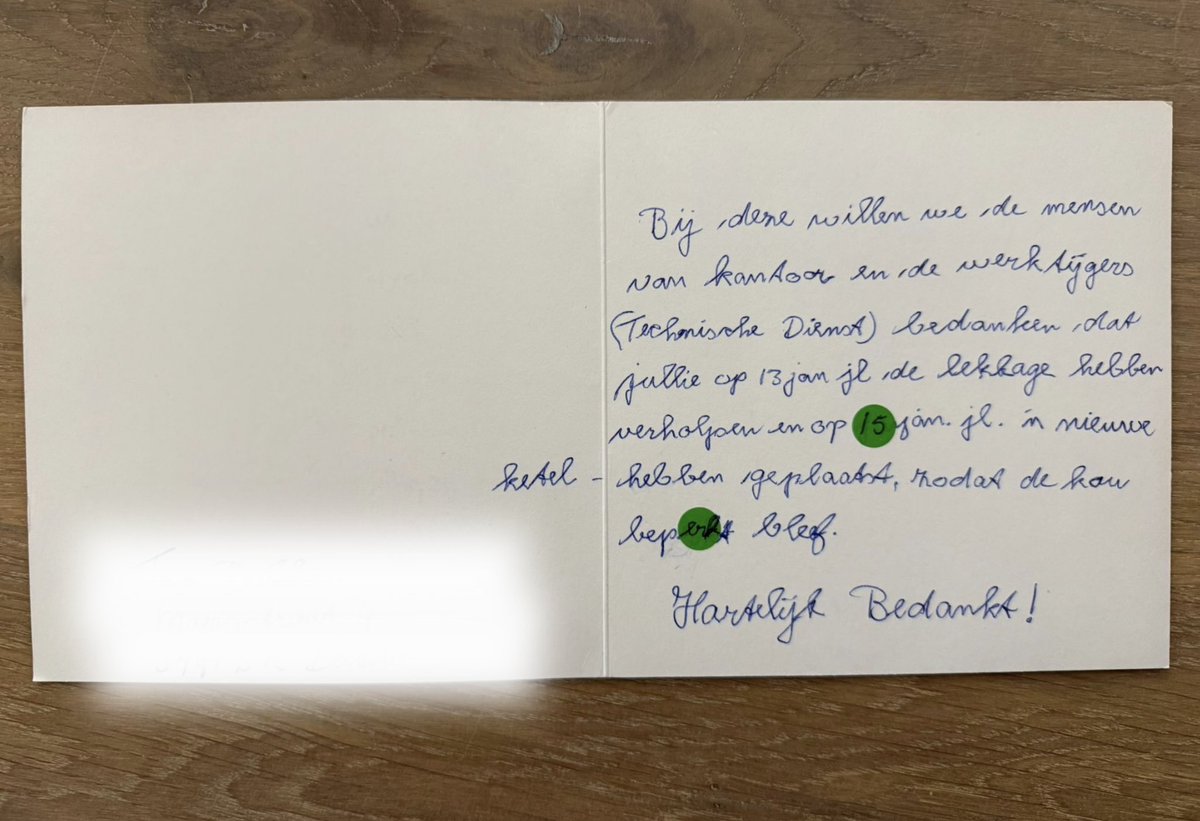 Bij deze willen we de mensen
van kantoor en de werktijgers
(Technische Dienst) bedanken dat
jullie op 13 jan jl de lekkage hebben
verholpen en op 15 jan. jl. 'n nieuwe
ketel - hebben geplaatst, zodat de kou
beperkt bleef.
Hartelijk Bedankt!